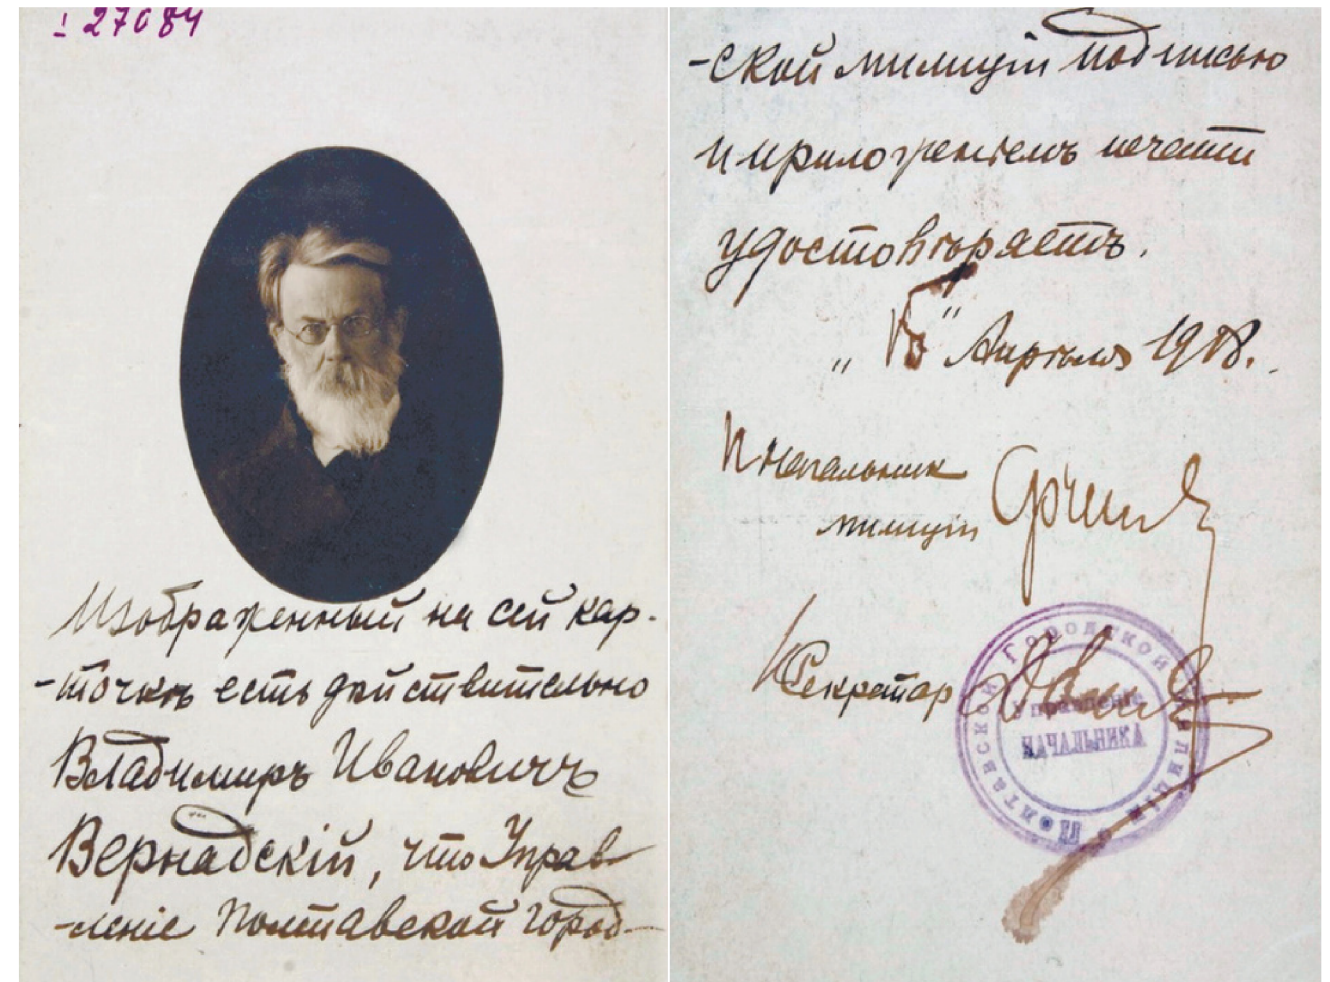 I 27084
Изображенный на сей кар-
-точкѣ есть дѣйствительно
Владимиръ Ивановичъ
Вернадскій, что Управ-
-леніе Полтавской город-
-ской милиціи подписью
и приложеніемъ печати
удостовѣряетъ.
" " Апрѣля 1918.
Начальник
милиціи
Секретарь
Полтавской Городской Милиціи
Управленіе
НАЧАЛЬНИКА